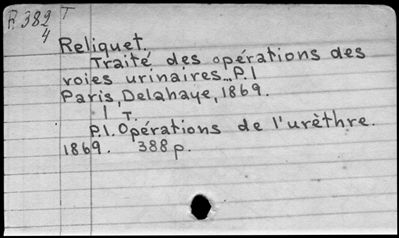 F. 382 T
4
Reliquet,
Traité des opérations des
voies urinaires...P.1
Paris, Delahaye, 1869.
1 T.
P.1. Opérations de l'urèthre.
1869. 388 p.